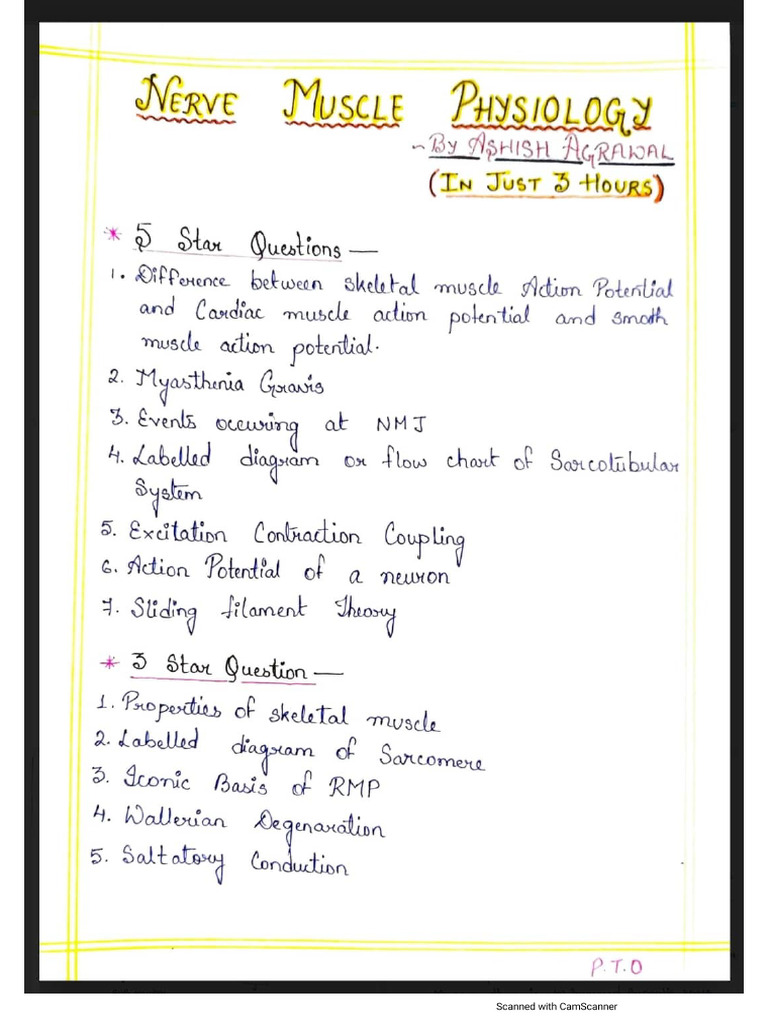 NERVE MUSCLE PHYSIOLOGY
~BY ASHISH AGRAWAL
(IN JUST 3 HOURS)
* 5 Star Questions —
1. Difference between skeletal muscle Action Potential
and Cardiac muscle action potential and smoth
muscle action potential.
2. Myasthenia Gravis
3. Events occuring at NMJ
4. Labelled diagram or flow chart of Sarcotubular
System
5. Excitation Contraction Coupling
6. Action Potential of a neuron
7. Sliding filament Theory
* 3 Star Question —
1. Properties of skeletal muscle
2. Labelled diagram of Sarcomere
3. Iconic Basis of RMP
4. Wallerian Degenaration
5. Saltatory Conduction
P.T.O
Scanned with CamScanner